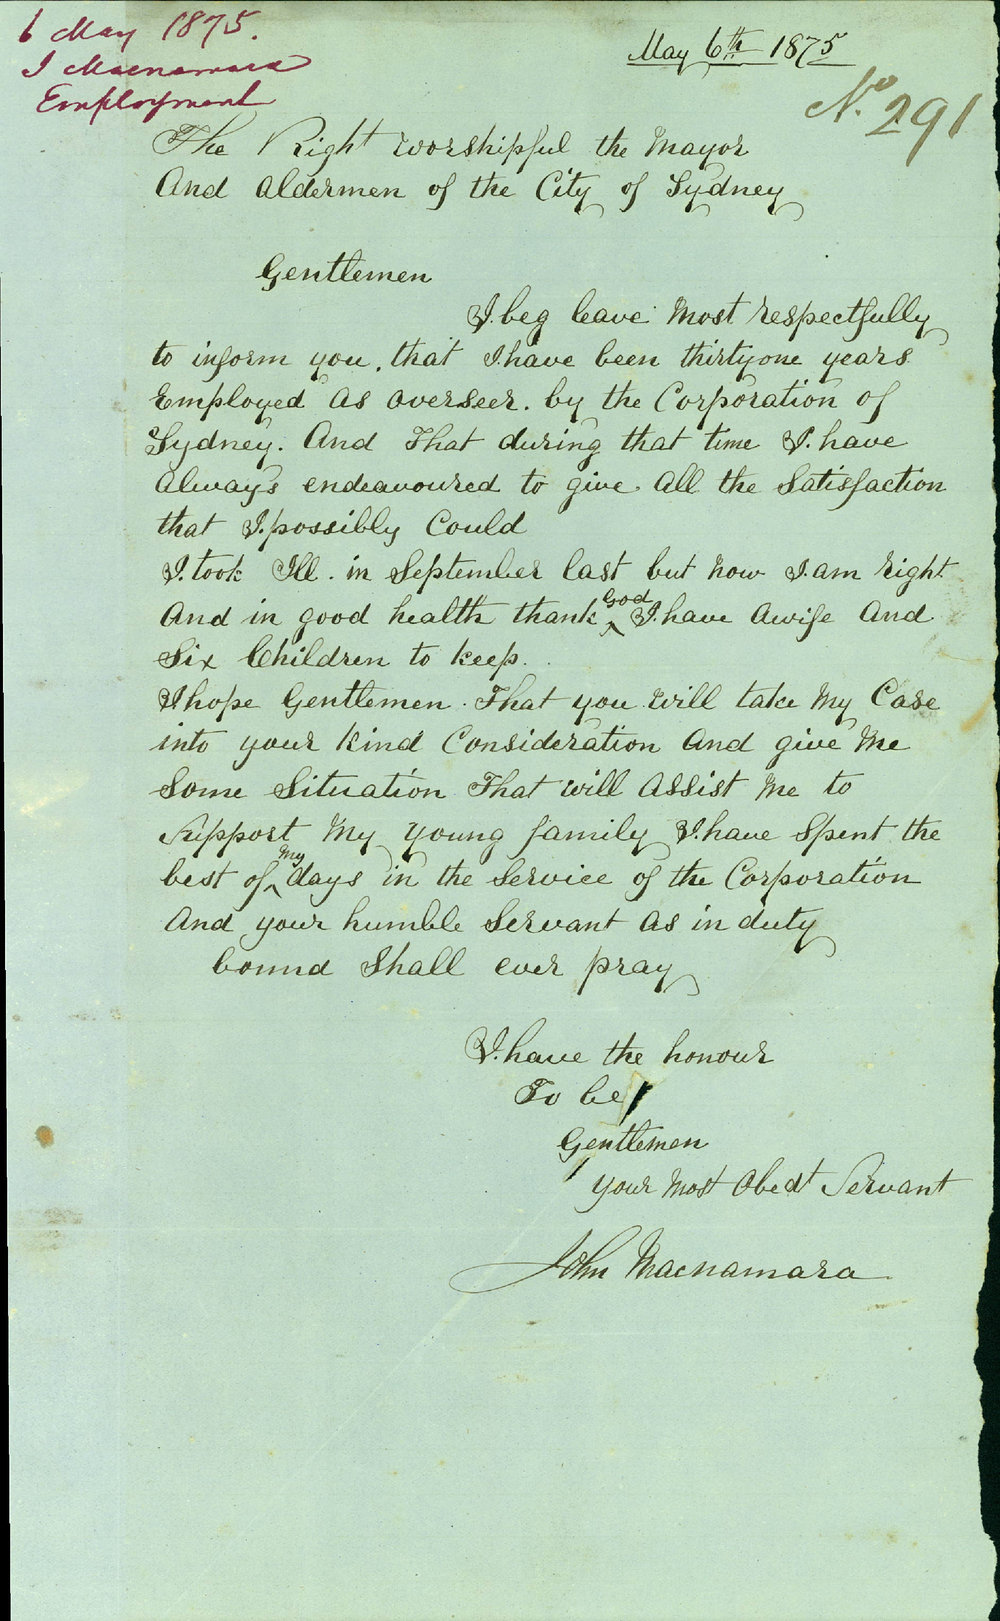 6 May 1875.
J Macnamara
Employment
May 6th 1875
No. 291
The Right worshipful the Mayor
And Aldermen of the City of Sydney
Gentlemen
I beg leave Most respectfully
to inform you, that I have been thirtyone years
Employed As overseer. by the Corporation of
Sydney. And That during that time I have
Always endeavoured to give All the Satisfaction
that I possibly Could
I took Ill. in September last but now I am right
And in good health thank God I have Awife And
Six Children to keep.
I hope Gentlemen. That you will take My Case
into your Kind Consideration And give Me
Some Situation That will ASSist Me to
Support My Young family I have Spent the
best of My days in the Service of the Corporation
And your humble Servant As in duty
bound Shall ever pray
I have the honour
To be
Gentlemen
your Most Obedt Servant
John Macnamara